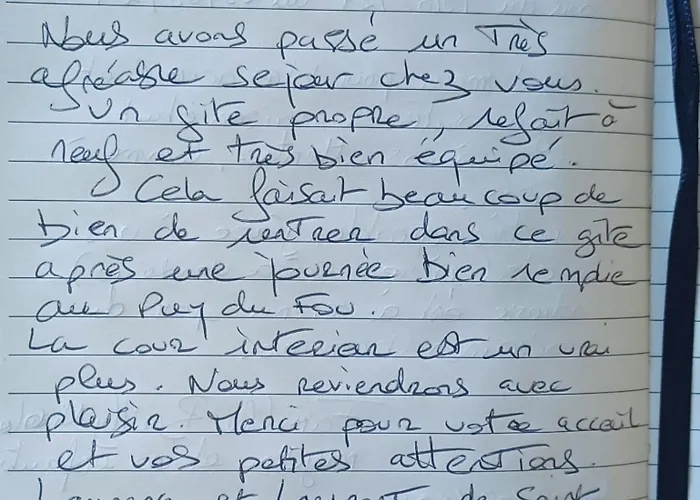 Nous avons passé un Très
agréable sejour chez vous.
Un gite propre, refait à
neuf et très bien équipé.
Cela faisait beaucoup de
bien de rentrer dans ce gîte
après une journée bien remplie
au Puy du Fou.
La cour interieur est un vrai
plus. Nous reviendrons avec
plaisir. Merci pour votre accueil
et vos petites attentions.
et de